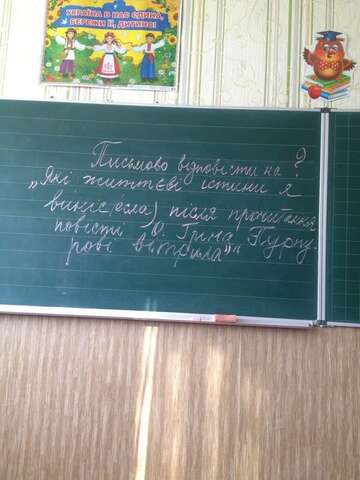 УКРАЇНА В НАС ЄДИНА,
БЕРЕЖИ ЇЇ, ДИТИНО!
Письмово відповісти на ?
„Які життєві істини я
виніс(есла) після прочитання
повісті О. Гріна „Пурпу-
рові вітрила""